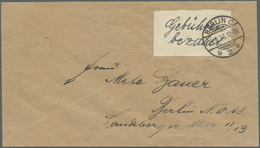 Gebühr
bezahlt
BERLIN C
Frau Meta Bauer
Berlin N.O.18
Landsberger